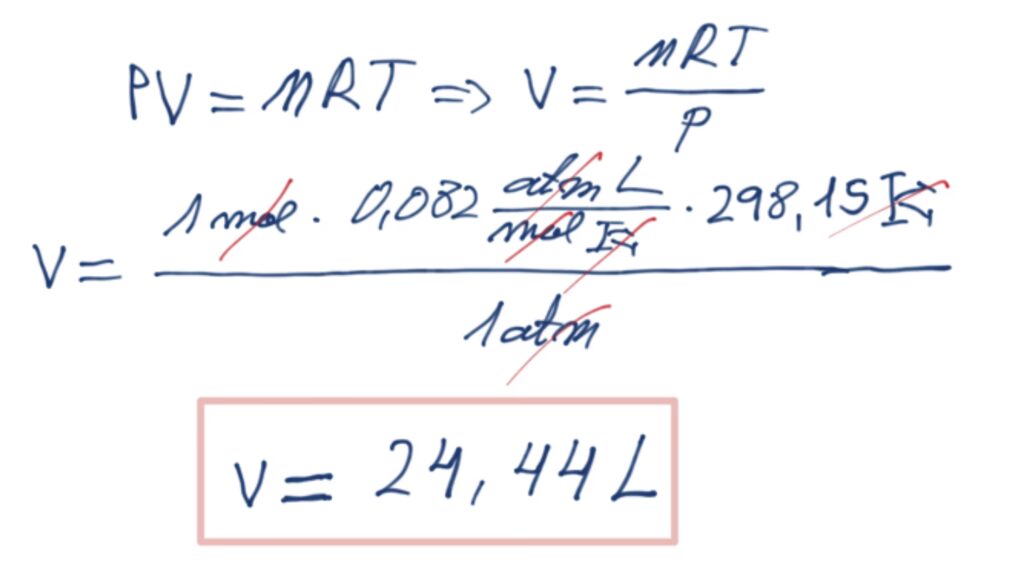 PV = nRT ⇒ V = nRT / P
V = 1 mol · 0,082 atm L / mol K · 298,15 K / 1 atm
V = 24,44 L